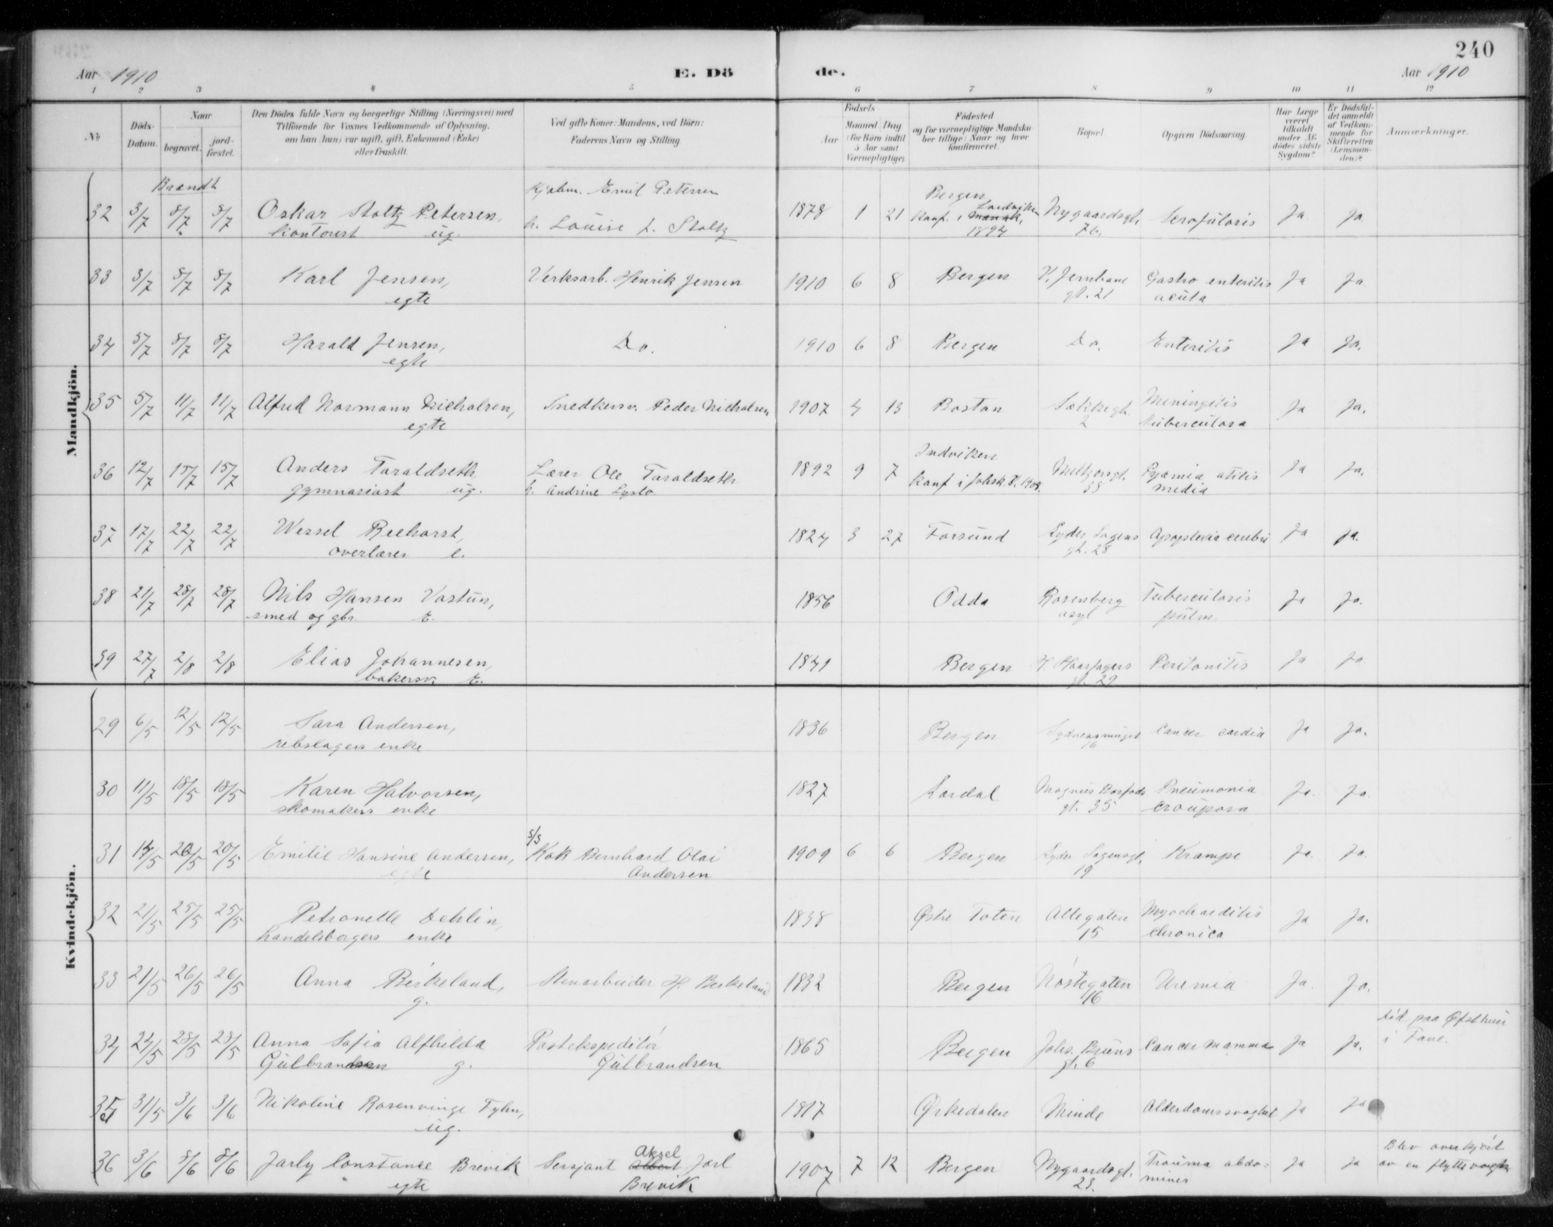 240
Aar 1910 E. Dö de. Aar 1910
1 2 3 4 5 6 7 8 9 10 11 12
No. Döds-Datum. Naar begravet. jord-fæstet. Den Dödes fulde Navn og borgerlige Stilling (Næringsvei) med Tilföiende for Voxnes Vedkommende af Oplysning, om han (hun) var ugift, gift, Enkemand (Enke) eller fraskilt. Ved gifte Koner: Mandens, ved Börn: Faderens Navn og Stilling. Födsels Aar Maaned Dag (for Börn indtil 5 Aar samt Værnepligtige) Födested og for værnepligtige Mandskaber tillige: Naar og hvor konfirmeret. Bopæl Opgiven Dödsaarsag. Har Læge været tilkaldt under Afdödes sidste Sygdom? Er Dödsfaldet anmeldt af Vedkommende for Skifteretten (Lensmanden)? Anmærkninger.
Mandkjön.
Brandt
32 3/7 8/7 8/7 Oskar Stoltz Petersen, kontorist ug. Emil Petersen h. Louise L. Stoltz 1878 1 21 Bergen konf. i 1894 Nygaardsgt. 76. Scrofulosis Ja Ja
33 3/7 8/7 8/7 Karl Jensen, egte Verksarb. Henrik Jensen 1910 6 8 Bergen V. Jernbane gt. 21 Gastro enteritis acuta Ja Ja
34 5/7 8/7 8/7 Harald Jensen, egte Do. 1910 6 8 Bergen Do. Enteritis Ja Ja.
35 5/7 11/7 11/7 Alfred Normann Nicholsen, egte Snedkersv. Peder Nicholsen 1907 4 13 Boston 2 Meningitis tuberculosa Ja Ja.
36 12/7 15/7 15/7 Anders Taraldseth gymnasiast ug. Lærer Ole Taraldseth h. Andrine Lysbo 1892 9 7 Indviken konf. i Johsk. Pyæmia otitis media Ja Ja.
37 17/7 22/7 22/7 Wessel Reehorst, overlærer e. 1824 3 27 Farsund Lyder Sagens gt. 28 Apoplexia cerebri Ja Ja.
38 21/7 28/7 28/7 Nils Hansen Vastun, smed og gbr. E. 1856 Odda Rosenberg asyl Tuberculosis pulm. Ja Ja.
39 27/7 2/8 2/8 Elias Johannesen, bakersv. E. 1841 Bergen H. Haarfagers gt. 29 Peritonitis Ja Ja
Kvindekjön.
29 6/5 12/5 12/5 Sara Andersen, rebslagers enke 1836 Bergen 16 Cancer cardia Ja Ja.
30 11/5 18/5 18/5 Karen Halvorsen, skomakers enke 1827 Lærdal Magnus Barfods gt. 35 Pneumonia crouposa Ja. Ja.
31 14/5 20/5 20/5 Emilie Hansine Andersen, egte S/S Kok Bernhard Olai Andersen 1909 6 6 Bergen Lyder Sagensgt. 19 Krampe Ja. Ja.
32 21/5 25/5 25/5 Petronelle Dehlin, handelsborgers enke 1838 Østre Toten Allegaten 15 Myocharditis chronica Ja Ja.
33 21/5 26/5 26/5 Anna Birkeland, g. Stenarbeider H. Birkeland 1832 Bergen Nöstegaten 46 Uremia Ja. Ja.
34 24/5 28/5 28/5 Anna Sofia Alfhilda Gulbrandsen g. Postekspeditör Gulbrandsen 1865 Bergen Johs. Bruns gt. 6 Cancer mamma Ja Ja. död paa i Fane.
35 31/5 3/6 3/6 Nikoline Rosenvinge Tyhn, ug. 1817 Ørkedalen Minde Alderdomssvaghet Ja Ja
36 3/6 8/6 8/6 Jarly Constance Brevik egte Sersjant Aksel Jarl Brevik 1907 7 12 Bergen Nygaardsgt. 23. Trauma abdominis Ja Ja Blev overkjört av en flyttevogn